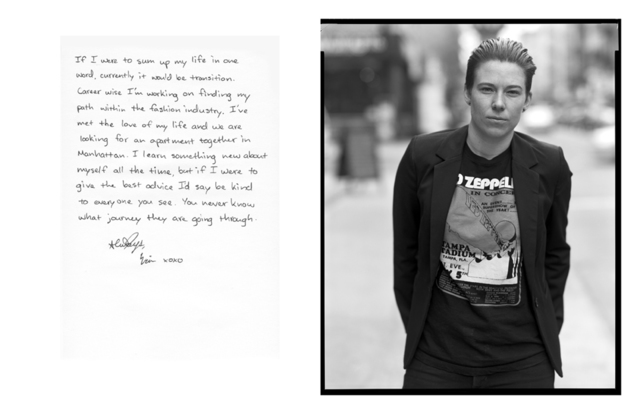 If I were to sum up my life in one
word, currently it would be transition.
Career wise I'm working on finding my
path within the fashion industry. I've
met the love of my life and we are
looking for an apartment together in
Manhattan. I learn something new about
myself all the time, but if I were to
give the best advice I'd say be kind
to everyone you see. You never know
what journey they are going through.
Always,
Erin xoxo
D ZEPPEL
IN CONCER
TAMPA
STADIUM
TAMPA, FLA.
EVE.
5TH